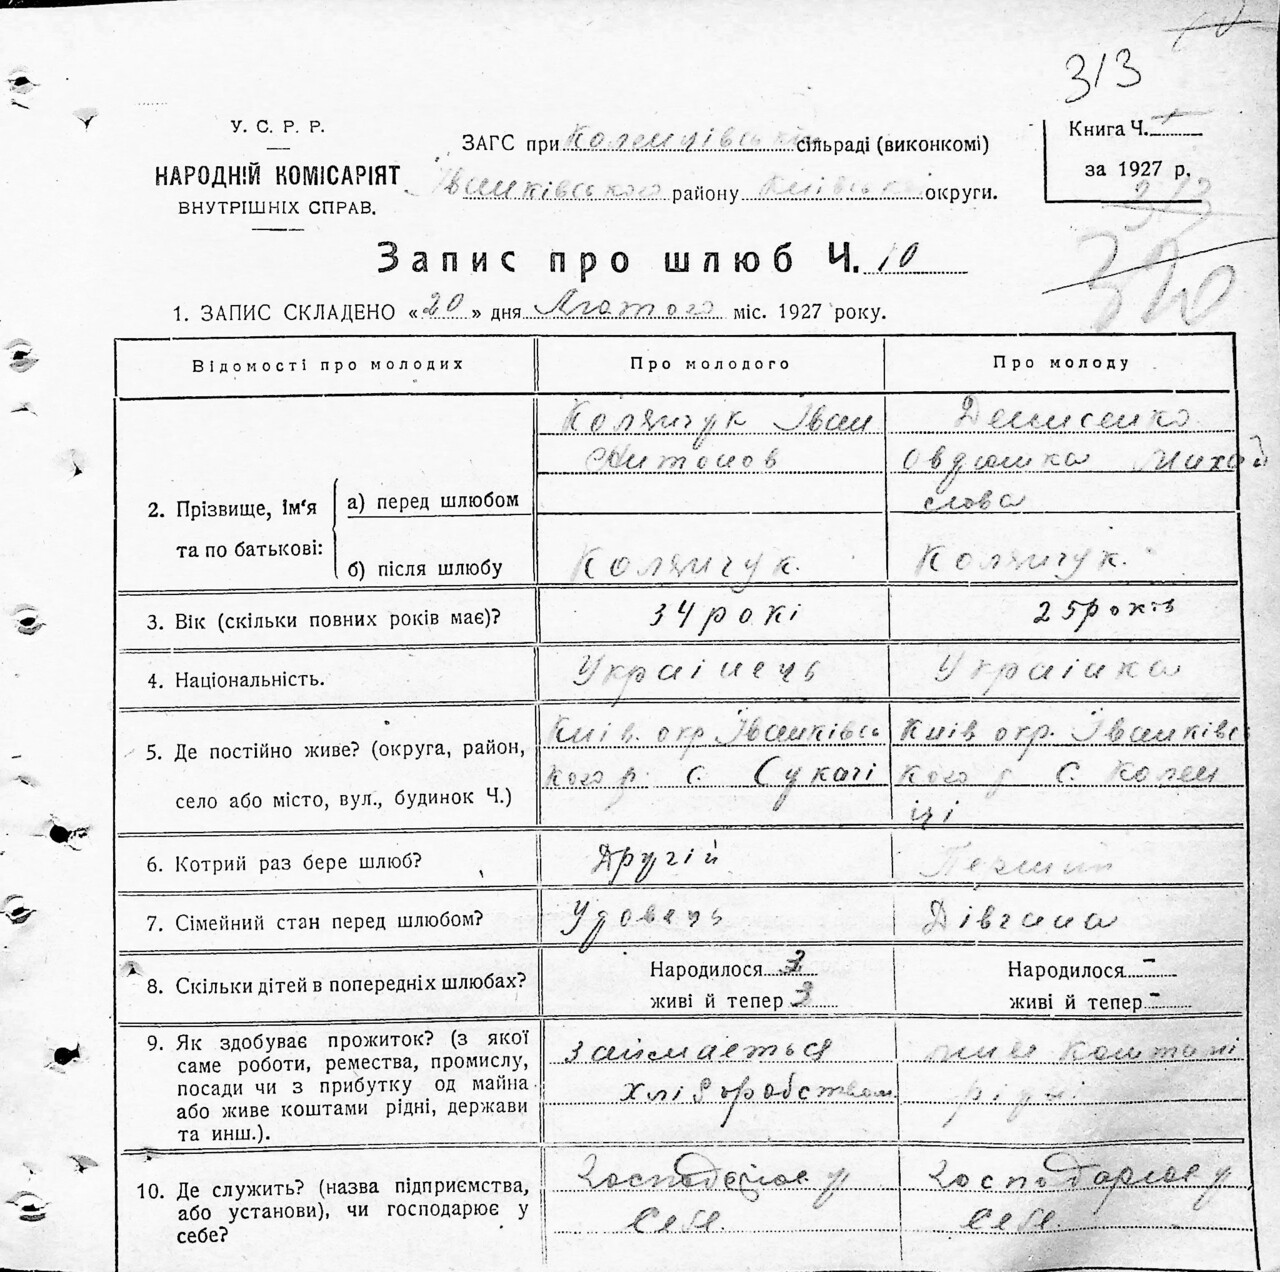 313
У. С. Р. Р.
НАРОДНІЙ КОМІСАРІЯТ
ВНУТРІШНІХ СПРАВ.
ЗАГС при Коленцівській сільраді (виконкомі)
Іванківського району Київської округи.
Книга Ч.
за 1927 р.
313
320
Запис про шлюб Ч. 10
1. ЗАПИС СКЛАДЕНО «20» дня Лютого міс. 1927 року.
Відомості про молодих
Про молодого
Про молоду
2. Прізвище, ім‘я та по батькові:
а) перед шлюбом
Колянчук Іван
Антонов
Денисенко
Овдюшка Михай
слова
б) після шлюбу
Колянчук.
Колянчук.
3. Вік (скільки повних років має)?
34 рокі
25 років
4. Національність.
Украінець
Украінка
5. Де постійно живе? (округа, район,
село або місто, вул., будинок Ч.)
Київ. окр. Іванківсь
кого р. с. Сукачі
Київ окр. Іванківсь
кого р с. Колен
ці
6. Котрий раз бере шлюб?
Другій
Перший
7. Сімейний стан перед шлюбом?
Удовець
Дівчина
8. Скільки дітей в попередніх шлюбах?
Народилося 3
живі й тепер 3
Народилося -
живі й тепер -
9. Як здобуває прожиток? (з якої
саме роботи, ремества, промислу,
посади чи з прибутку од майна
або живе коштами рідні, держави
та инш.).
займається
хліборобством.
живе коштами
рідні.
10. Де служить? (назва підприємства,
або установи), чи господарює у
себе?
Господарює у
себе.
Господарює у
себе.